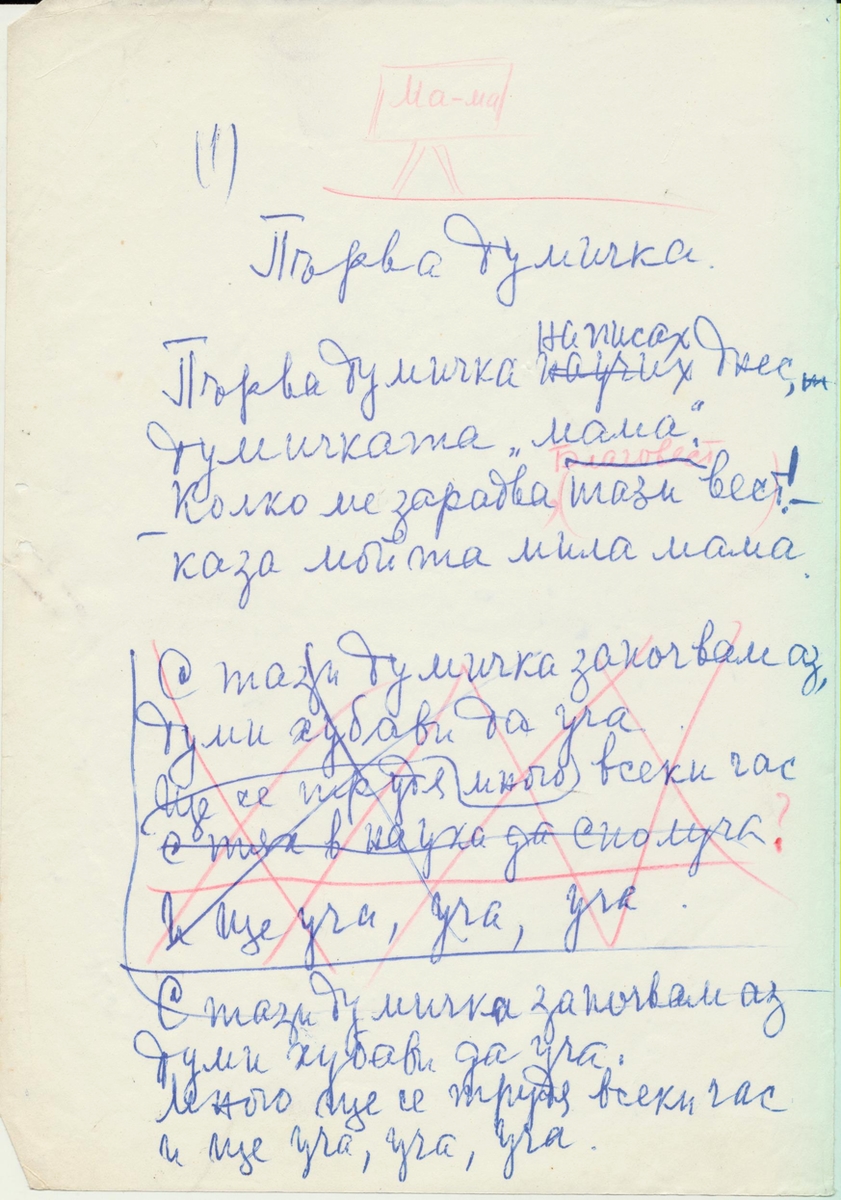 Ма-ма
(1)
Първа думичка.
написах
Първа думичка научих днес,
думичката „мама“.
Благовест
Колко ме зарадва тази вест! –
– каза мойта мила мама.
С тази думичка започвам аз,
думи хубави да уча.
Ще се трудя много всеки час
с тях в наука да сполуча?
И ще уча, уча, уча.
С тази думичка започвам аз
думи хубави да уча.
Много ще се трудя всеки час
и ще уча, уча, уча.